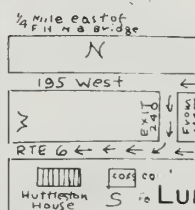 1/4 Mile east of
F H N B Bridge
N
195 West
Exit
240
W
RTE 6
Huttleston
House
S
LU